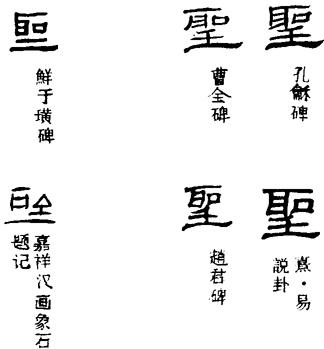 聖
孔龢碑
聖
曹全碑
聖
鮮于璜碑
聖
熹·易
說卦
聖
趙君碑
聖
嘉祥汉画象石
题记